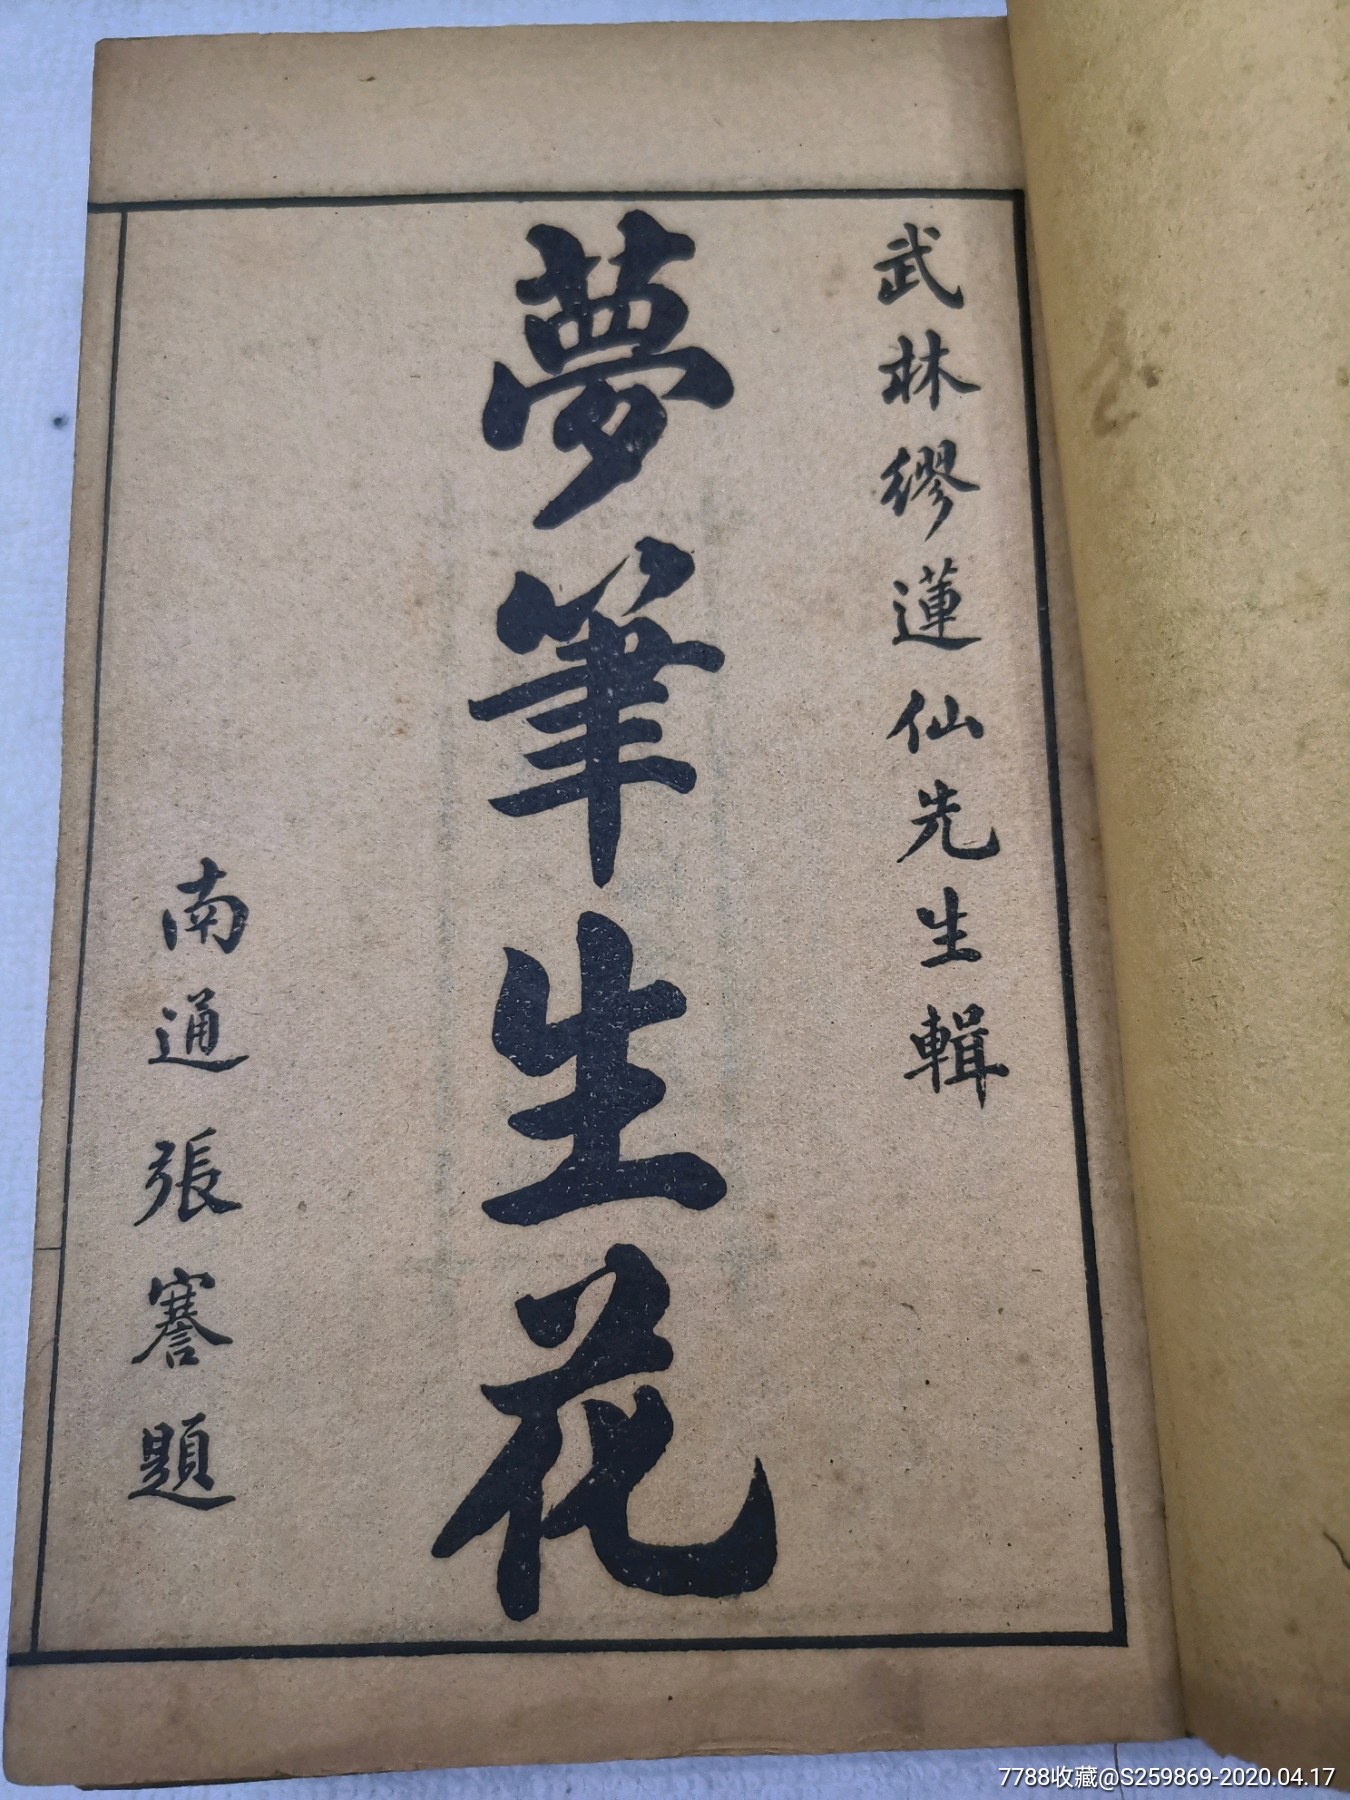 武林繆蓮仙先生輯
夢筆生花
南通張謇題
7788收藏@S259869-2020.04.17